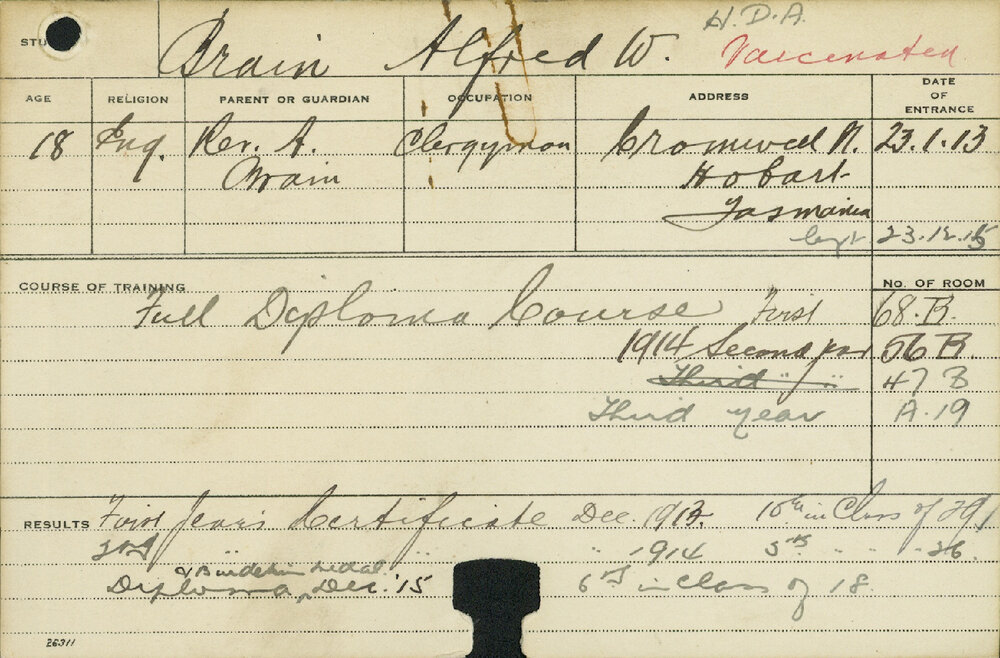 H.D.A.
STU Brain Alfred W. Vaccinated
AGE RELIGION PARENT OR GUARDIAN OCCUPATION ADDRESS DATE OF ENTRANCE
18 Eng. Rev. A. Clergyman Cromwell 23.1.13
Brain Hobart
Tasmania
23.12.15
COURSE OF TRAINING No. OF ROOM
Full Diploma Course First 68.B.
1914 Second year 56 B.
Third " " 47 B
Third year A.19
RESULTS First Years Certificate Dec. 1913. 10th in Class of 29
2nd " " " 1914 5th " " " 26.
& Burdekin Medal
Diploma, Dec. '15 6th in Class of 18.
26311